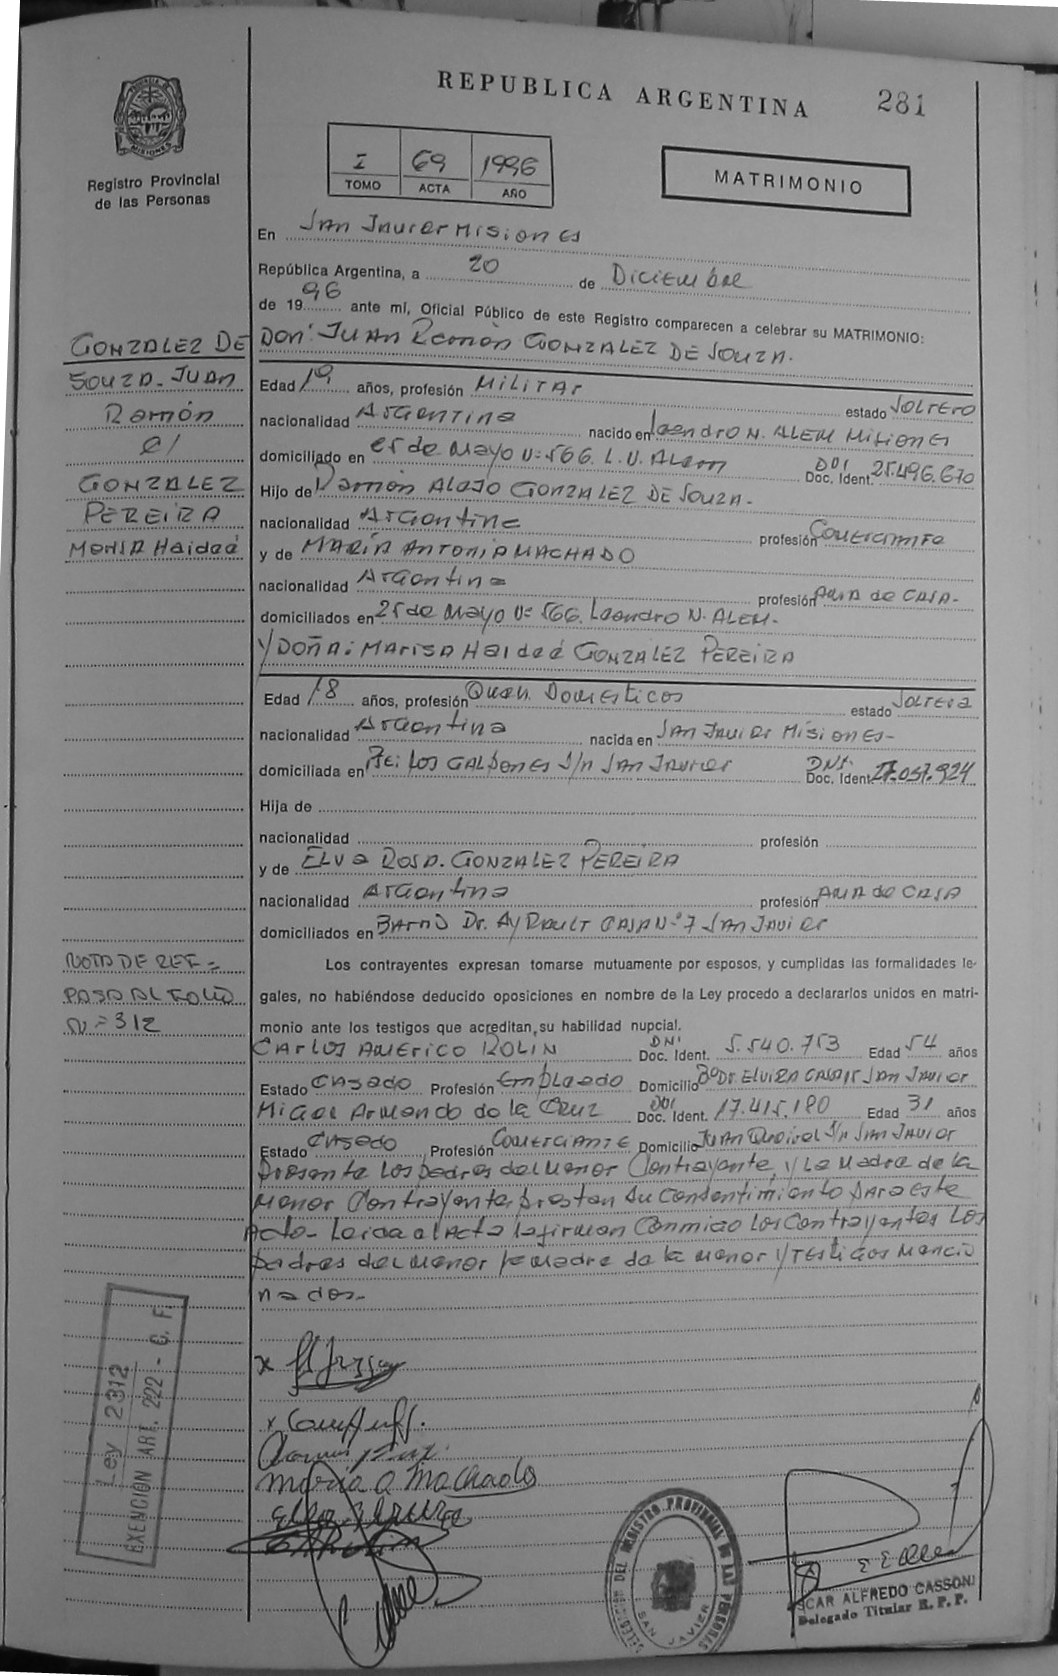 REPUBLICA ARGENTINA
281
PROVINCIA DE MISIONES
Registro Provincial
de las Personas
I 69 1996
TOMO ACTA AÑO
MATRIMONIO
En San Javier Misiones
República Argentina, a 20 de Diciembre
de 1996 ante mí, Oficial Público de este Registro comparecen a celebrar su MATRIMONIO:
Don: Juan Ramón GONZALEZ DE SOUZA.
Edad 19 años, profesión Militar estado Soltero
nacionalidad Argentina nacido en Leandro N. ALEM Misiones
domiciliado en 25 de Mayo Nº 566. L.N. Alem DNI Doc. Ident. 25.496.670
Hijo de Ramón Alejo GONZALEZ DE SOUZA.
nacionalidad Argentina profesión Comerciante
y de MARÍA ANTONIA MACHADO
nacionalidad Argentina profesión Ama de CASA.
domiciliados en 25 de Mayo Nº 566. Leandro N. ALEM.
Y DOÑA: MARISA Haideé GONZALEZ PEREIRA
Edad 18 años, profesión Quah. Domesticos estado Soltera
nacionalidad Argentina nacida en SAN Javier Misiones-
domiciliada en Pje: LOS GALPONES S/n SAN JAVIER DNI. Doc. Ident. 27.057.924
Hija de
nacionalidad profesión
y de Elva ROSA. GONZALEZ PEREIRA
nacionalidad Argentina profesión AMA de CASA
domiciliados en Barrio Dr. AYRAULT CASA Nº 7 San Javier
Los contrayentes expresan tomarse mutuamente por esposos, y cumplidas las formalidades le-
gales, no habiéndose deducido oposiciones en nombre de la Ley procedo a declararlos unidos en matri-
monio ante los testigos que acreditan su habilidad nupcial.
CARLOS AMERICO ROLIN DNI Doc. Ident. 5.540.753 Edad 54 años
Estado Casado Profesión Empleado Domicilio Bº Dr. ELVIRA CASA 15 San Javier
Miguel Armando de la Cruz DNI Doc. Ident. 17.415.180 Edad 31 años
Estado Casado Profesión COMERCIANTE Domicilio JUAN S/n San Javier
Presente los padres del menor Contrayente, y la Madre de la
Menor Contrayente, prestan su consentimiento para este
Acto- Leida el Acta la firman Conmigo los contrayentes los
padres del menor la madre de la menor y testigos mencio
nados.-
GONZALEZ DE
SOUZA- JUAN
Ramón
C/
GONZALEZ
PEREIRA
MARISA Haideé
NOTA DE REF=
PASA AL FOLIO
Nº 312
Ley 2312
EXENCION ART. 222 - C. F.
Maria A Machado
DELEGACION DEL REGISTRO PROVINCIAL DE LAS PERSONAS
SAN JAVIER
OSCAR ALFREDO CASSONI
Delegado Titular R. P. P.